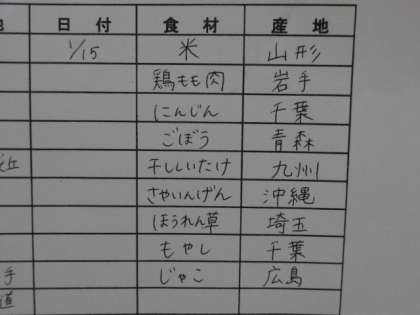 地 日付 食材 産地
1/15 米 山形
鶏もも肉 岩手
にんじん 千葉
ごぼう 青森
丘 干ししいたけ 九州
さやいんげん 沖縄
ほうれん草 埼玉
もやし 千葉
手 じゃこ 広島
道